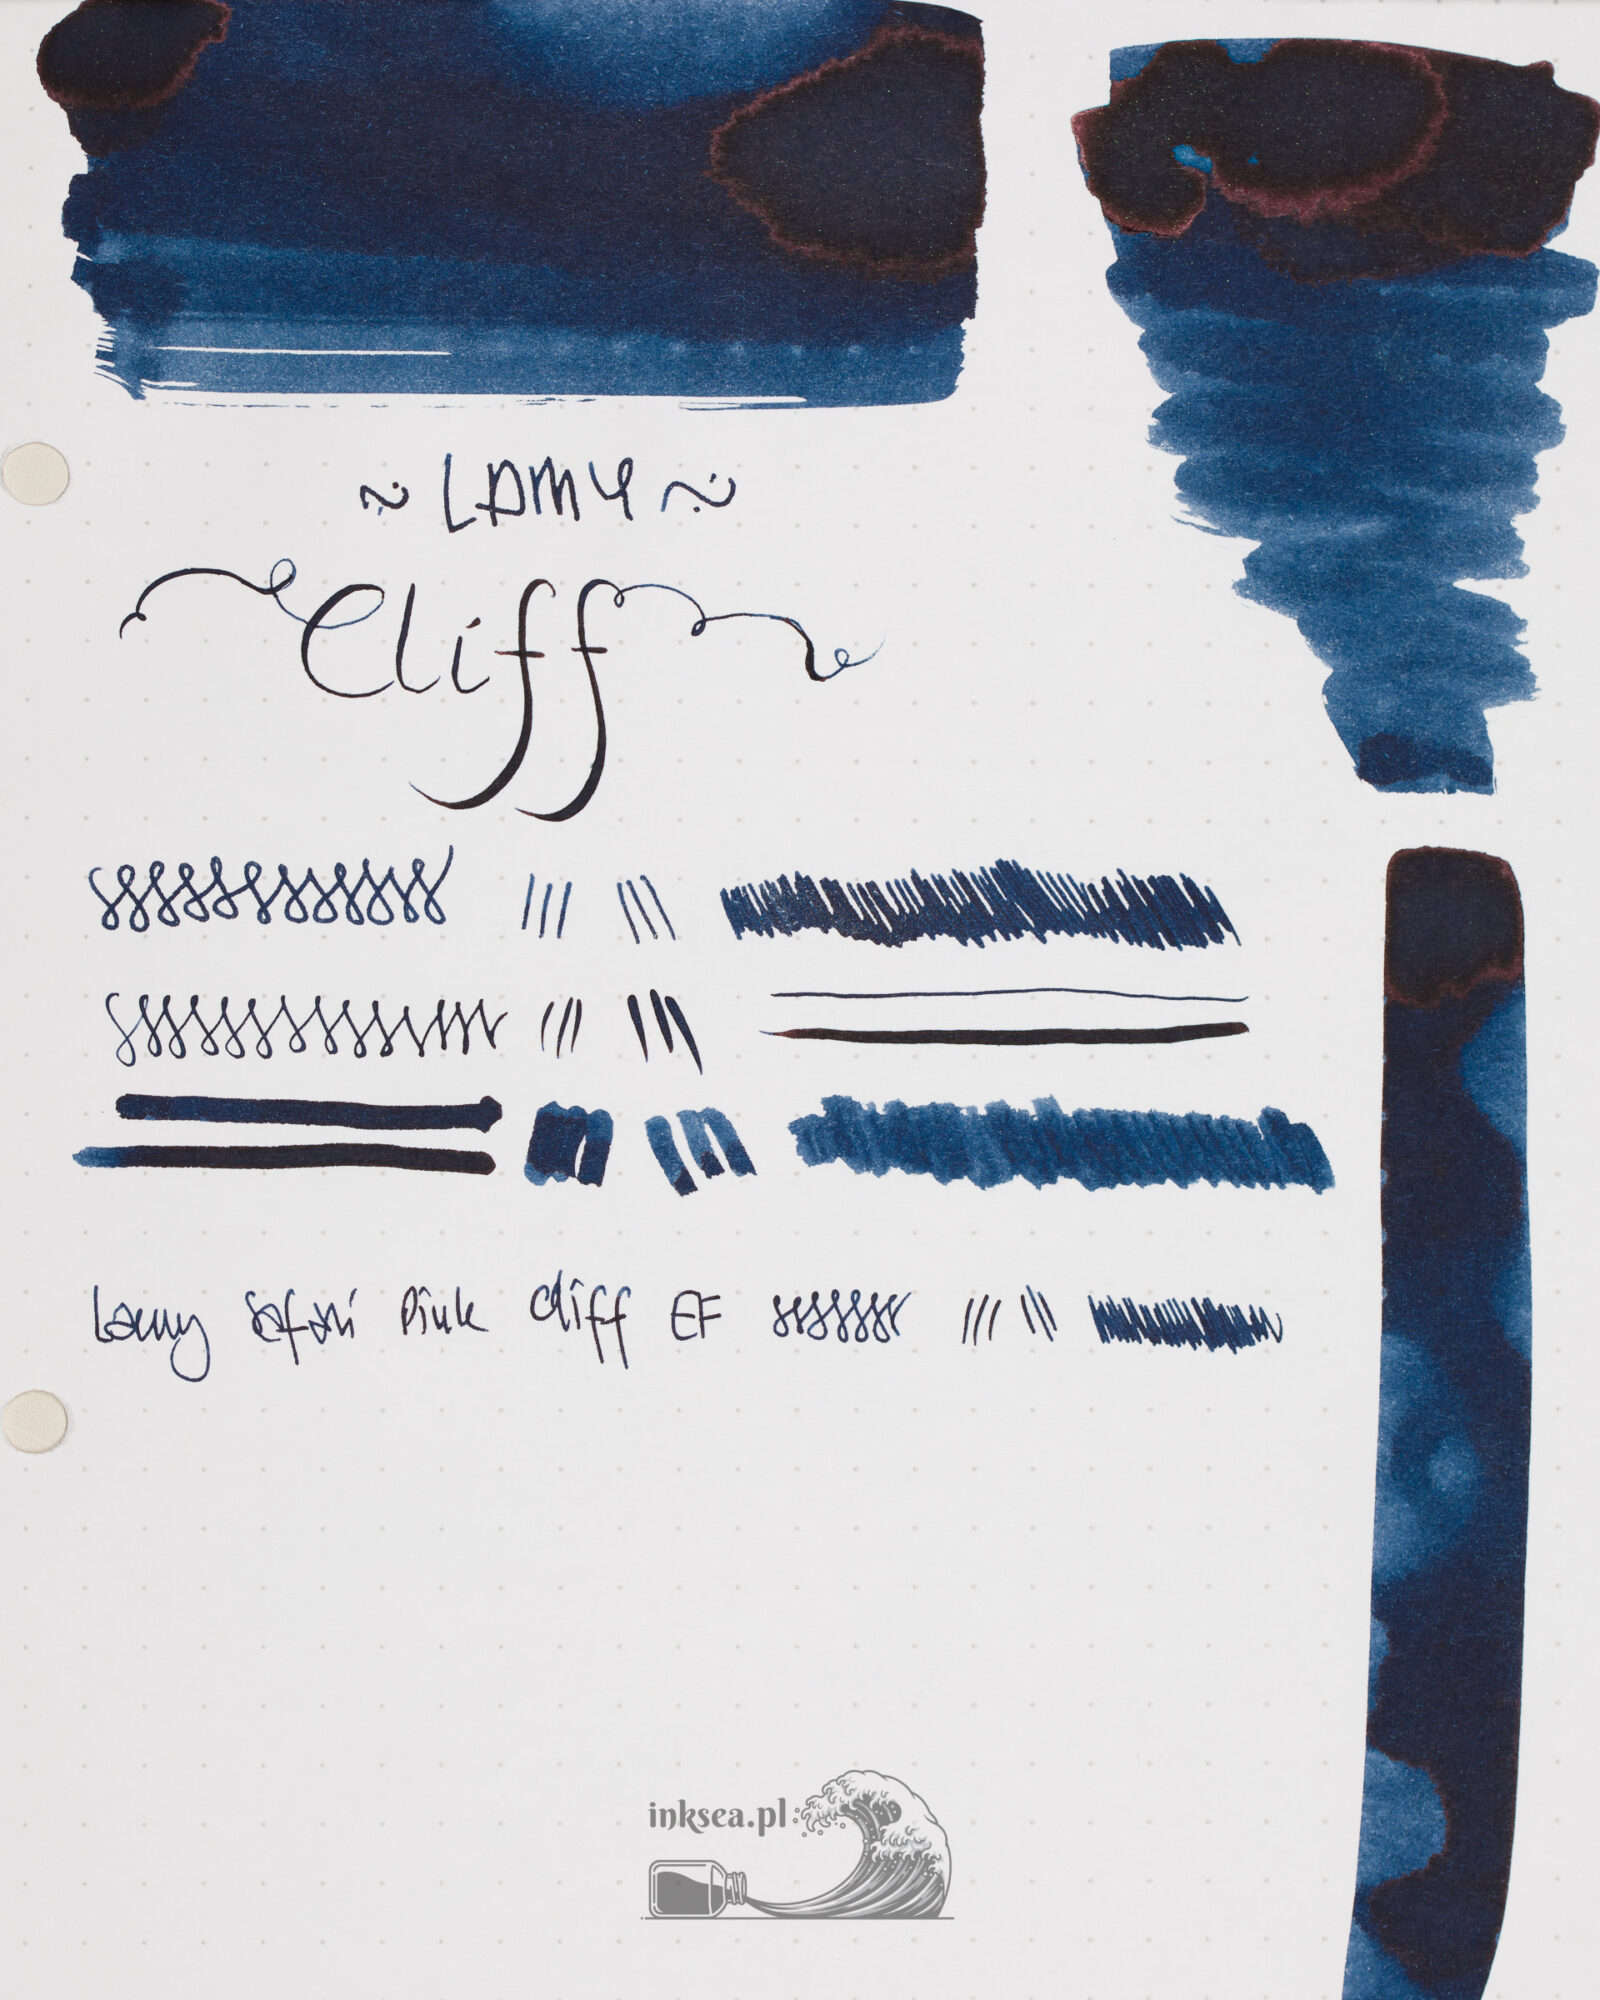 ~ LAMY ~
Cliff
Lamy Safari Pink Cliff EF
inksea.pl